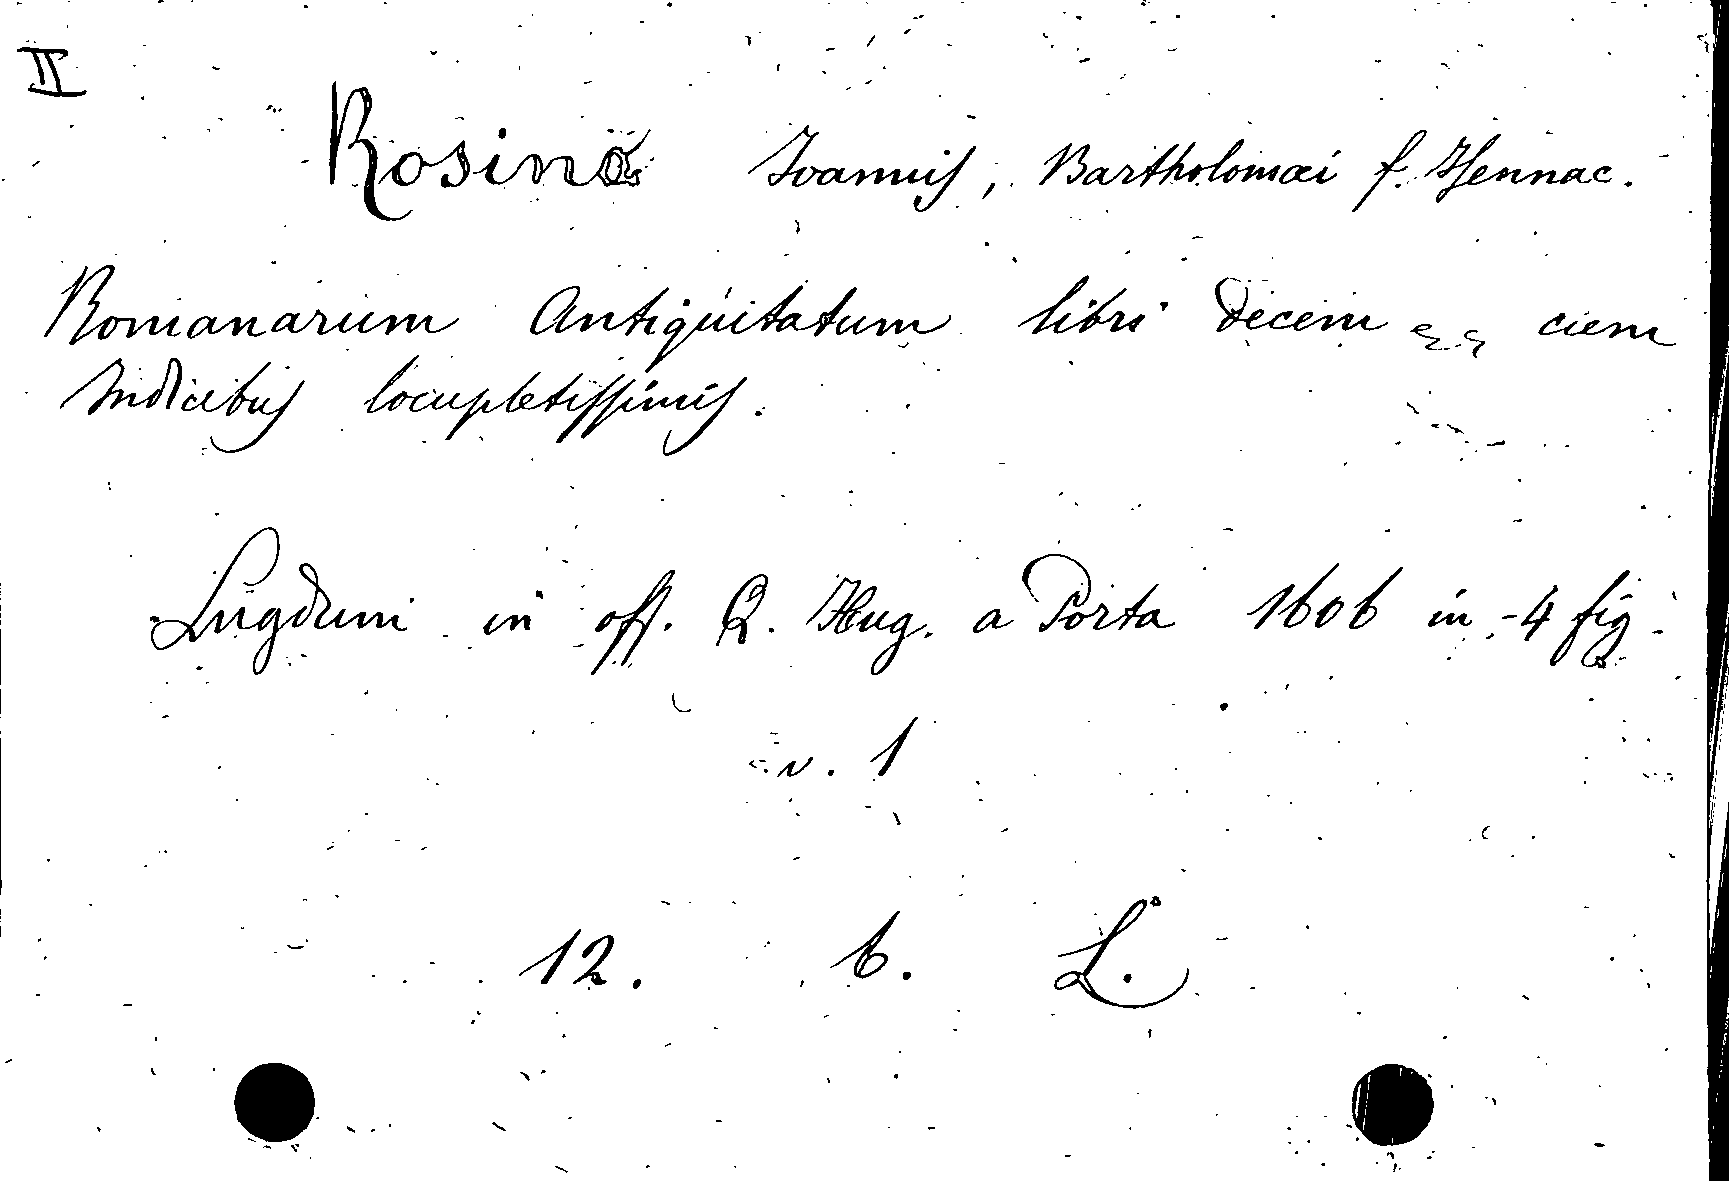 II
Rosino Ioannis, Bartholomæi f. Isennac.
Romanarum Antiquitatum libri decem cum
Indicibus locupletissimis.
Lugduni in off. Q. Hug. a Porta 1606 in-4 fig.
v. 1
12. b. L.